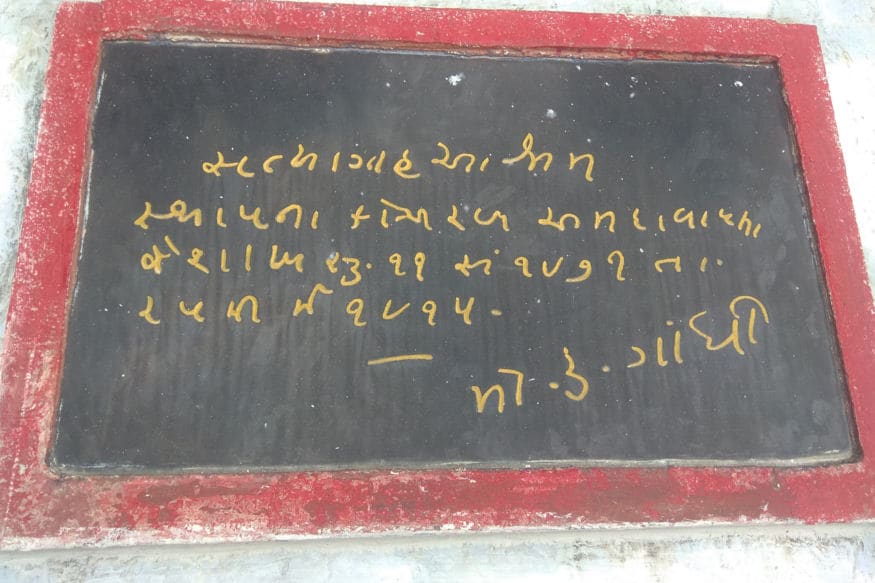 સત્યાગ્રહ આશ્રમ
સ્થાપના કોચરબ અમદાવાદમાં
વૈશાખ સુ. ૧૧ સં ૧૯૭૧ તા.
૨૫ મી મે ૧૯૧૫.
મો. ક. ગાંધી